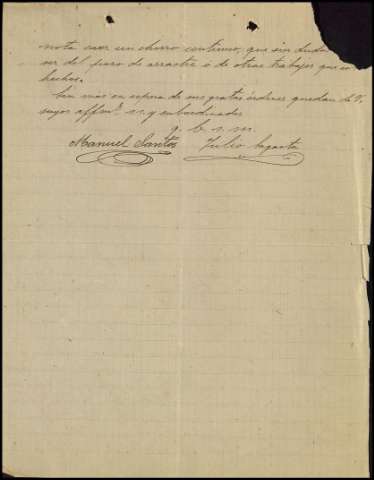 nota caer un chorro continuo, que sin duda
ser del piso de arrastre ó de otros trabajos que
hechos.
Sin mas en espera de sus gratas órdenes quedan de V.
suyos affmos. s.s. y subordinados
q. b. s. m.
Manuel Santos Julio Sagasta